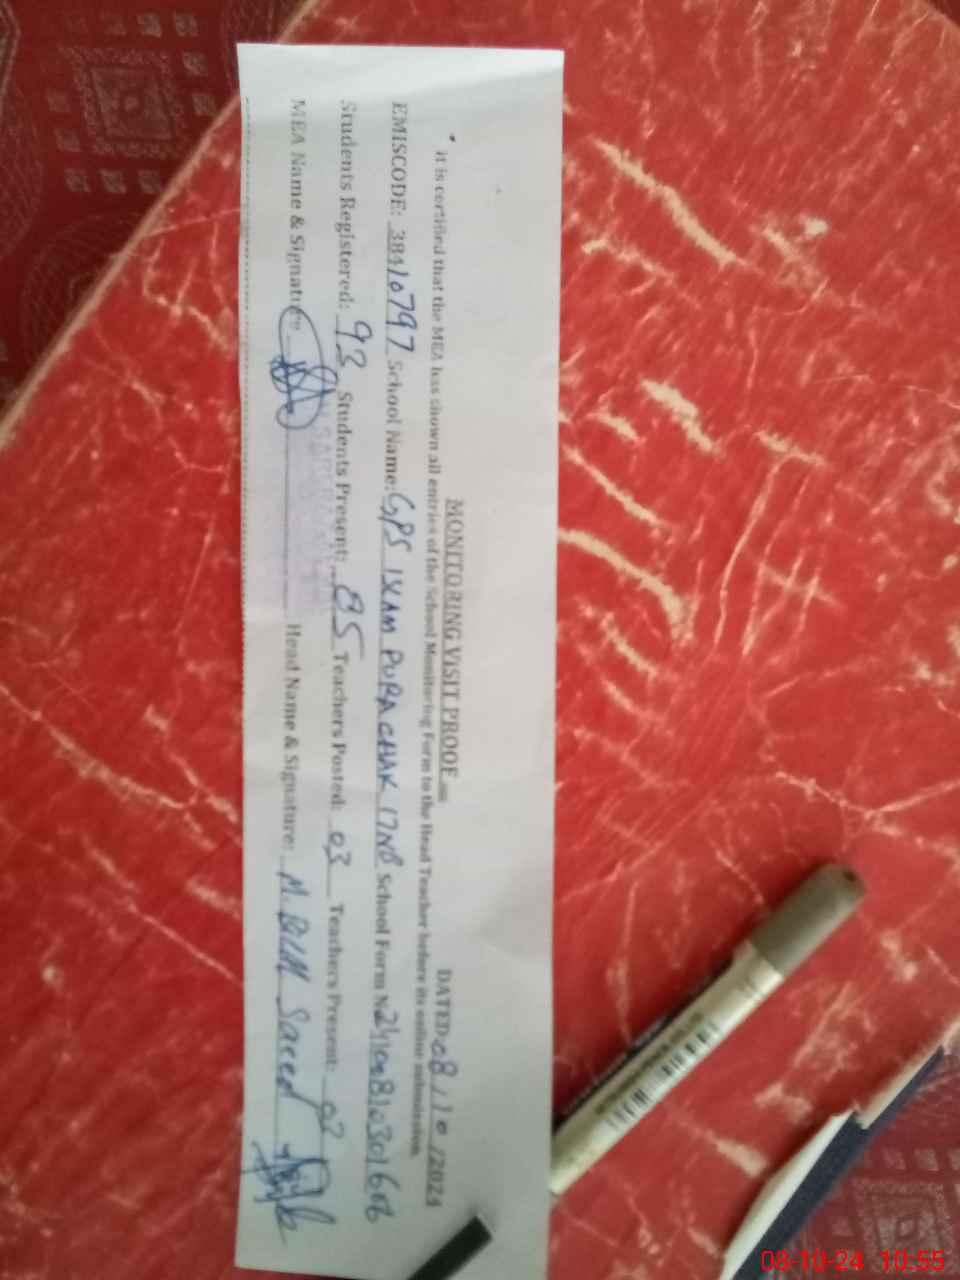 MONITORING VISIT PROOF DATED 08/10/2024
It is certified that the MEA has shown all entries of the School Monitoring Form to the Head Teacher before its online submission.
EMISCODE: 38410797 School Name: GPS IKAM PURA CHAK 17NB School Form N
Students Registered: 93 Students Present: 85 Teachers Posted: 03 Teachers Present: 03
MEA Name & Signature Head Name & Signature: M. Bilal Saeed
08-10-24 10:55